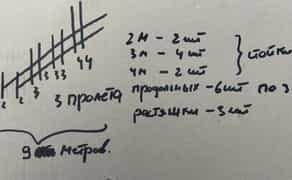 2 2 3 3 3 3 4 4
3 пролета
9 метров.
2м - 2шт
3м - 4шт
4м - 2шт
} стойки
продольных - 6шт по 3
растяжки - 3шт